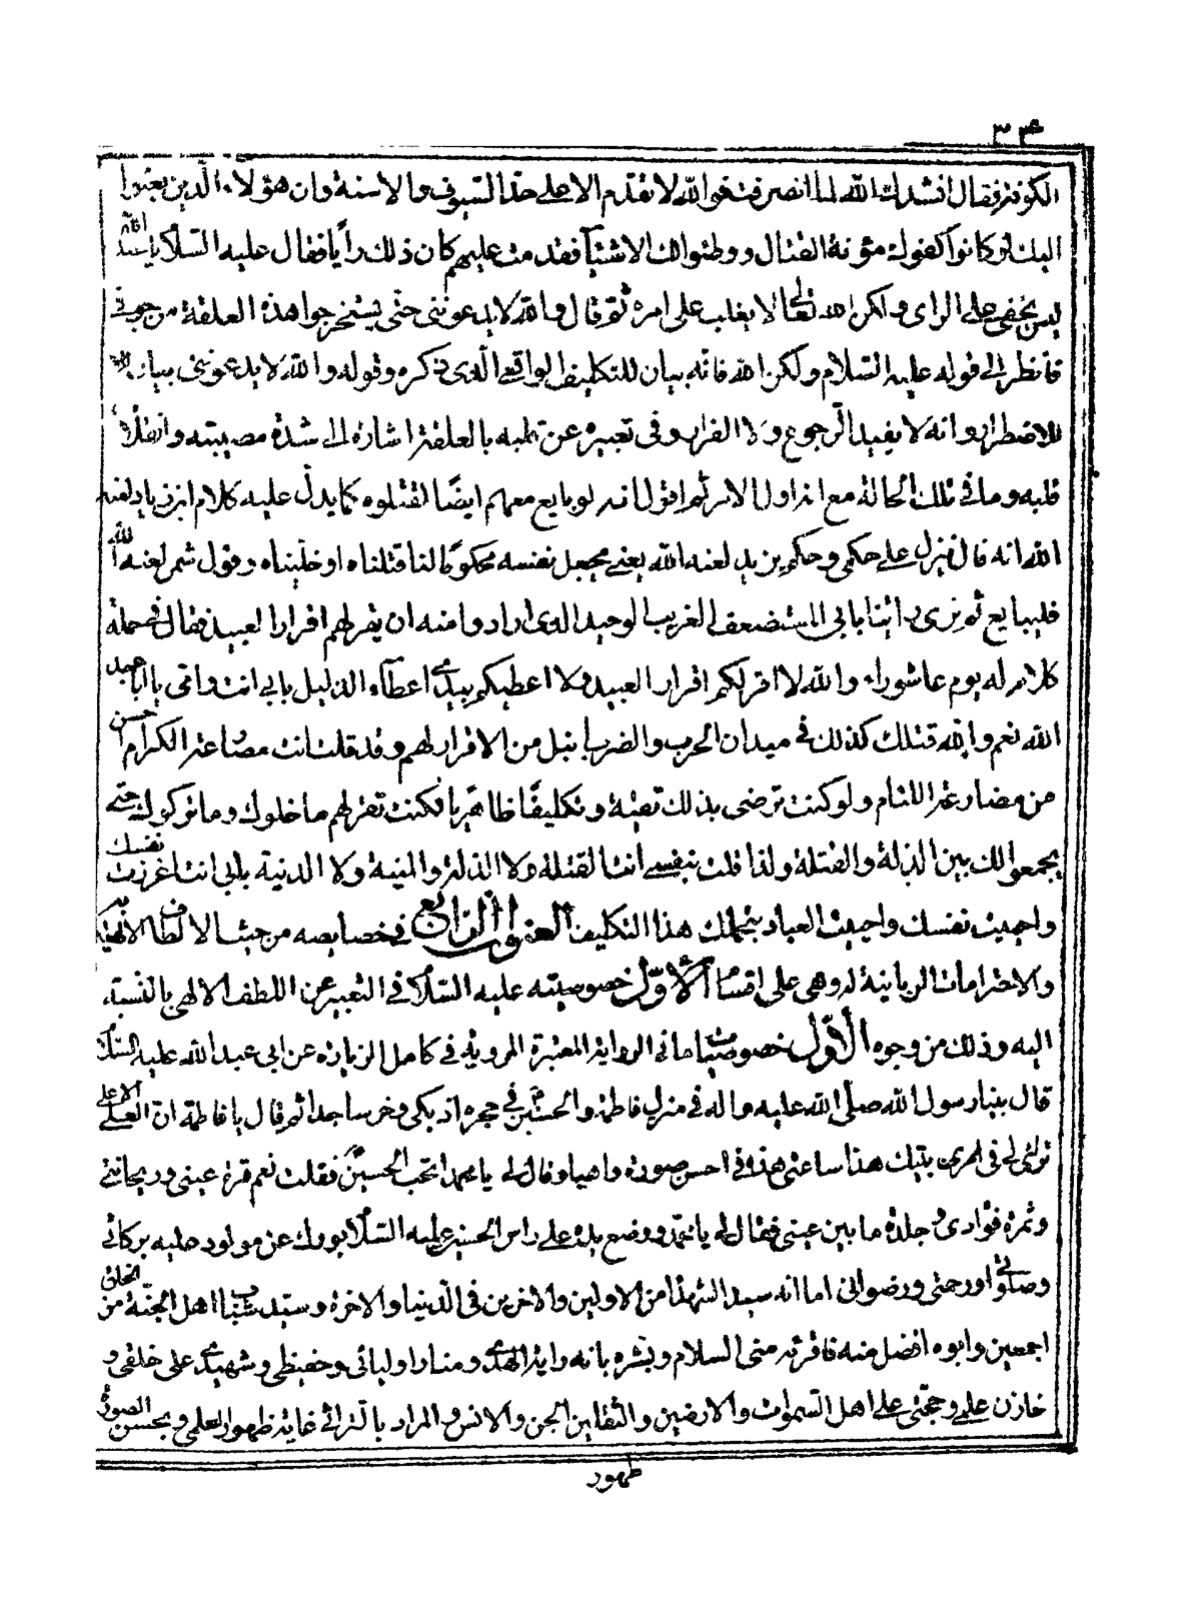 ٣٤
الكوفة فقال انشدك الله لما انصرفت فوالله لا تقدم الا على حد السيوف والاسنة وان هؤلاء الذين بعثوا
اليك لو كانوا كفوك مؤنة القتال ووطئوا لك الاشياء فقدمت عليهم كان ذلك رأيا فقال عليه السلام
ليس يخفى على الراى ولكن الله تعالى لا يغلب على امره ثم قال والله لا يدعوننى حتى يستخرجوا هذه العلقة من جوفى
فانظر الى قوله عليه السلام ولكن الله فانه بيان للتكليف الواقعى الذى ذكره وقوله والله لا يدعوننى بيان
للاضطرار وانه لا يفيد الرجوع ولا الفرار وفى تعبيره عن قلبه بالعلقة اشارة الى شدة مصيبته وانقلاب
قلبه وما فى تلك الحالة مع انه اول الامر ثم اقول انه لو بايع معهم ايضًا لقتلوه كما يدل عليه كلام ابن زياد لعنه
الله انه قال ينزل على حكمى وحكم يزيد لعنه الله يعنى يجعل نفسه محكومًا لنا قتلناه او خليناه وقول شمر لعنه الله
فليبايع ثم نرى راينا بابى المستضعف الغريب الوحيد الذى ارادوا منه ان يقر لهم اقرار العبيد فقال فى جملة
كلام له يوم عاشوراء والله لا اقر لكم اقرار العبيد ولا اعطيكم بيدى اعطاء الذليل بابى انت وامى يا ابا عبد
الله نعم والله قتلك كذلك فى ميدان الحرب والضرب انبل من الاقرار لهم وقد قلت انت مصارعة الكرام احسن
من مصارعة اللئام ولو كنت ترضى بذلك تقية وتكليفًا ظاهريا فكنت تقر لهم ما خلوك وما تركوك حتى
يجمعوا لك بين الذلة والقتلة ولذا قلت بنفسى انت القتلة ولا الذلة والمنية ولا الدنية بابى انت اعززت نفسك
واحييت نفسك واحييت العباد بتحملك هذا التكليف العنوان الرابع فى خصايصه من حيث الالطاف الالهية
والاحترامات الربانية له وهى على اقسام الاول خصوصيته عليه السلام فى التعبير عن اللطف الالهى بالنسبة
اليه وذلك من وجوه الاول خصوصيات ما فى الرواية المعتبرة المروية فى كامل الزيارة عن ابى عبد الله عليه السلام
قال بينا رسول الله صلى الله عليه واله فى منزل فاطمة والحسين فى حجره اذ بكى وخر ساجدا ثم قال يا فاطمة ان العلى الاعلى
ترائى لى فى بيتك هذا ساعتى هذه فى احسن صورة واهيا وقال لى يا محمد اتحب الحسين فقلت نعم قرة عينى وريحانتى
وثمرة فؤادى وجلدة ما بين عينى فقال لى يا محمد ووضع يده على راس الحسين عليه السلام بورك من مولود عليه بركاتى
وصلواتى ورحمتى ورضوانى اما انه سيد الشهداء من الاولين والاخرين فى الدنيا والاخرة وسيد شباب اهل الجنة من الخلق
اجمعين وابوه افضل منه فاقرئه منى السلام وبشره بانه راية الهدى ومنار اوليائى وحفيظى وشهيدى على خلقى و
خازن علمى وحجتى على اهل السموات والارضين والثقلين الجن والانس والمراد بالترائى غاية ظهور العلمى وبحسن الصورة
ظهور